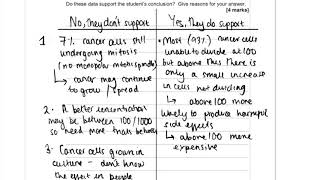 Do these data support the student's conclusion? Give reasons for your answer.
[4 marks]
No, they don't support
Yes, they do support
1 7% cancer cells still
undergoing mitosis
(no monopolar mitotic spindle)
↳ cancer may continue
to grow / spread
2. A better concentration
may be between 100/1000
so need more trials between
3. Cancer cells grown in
culture - don't know
the effect in people
• Most (93%) cancer cells
unable to divide at 100
but above this there is
only a small increase
in cells not dividing
↳ above 100 more
likely to produce harmful
side effects
↳ above 100 more
expensive